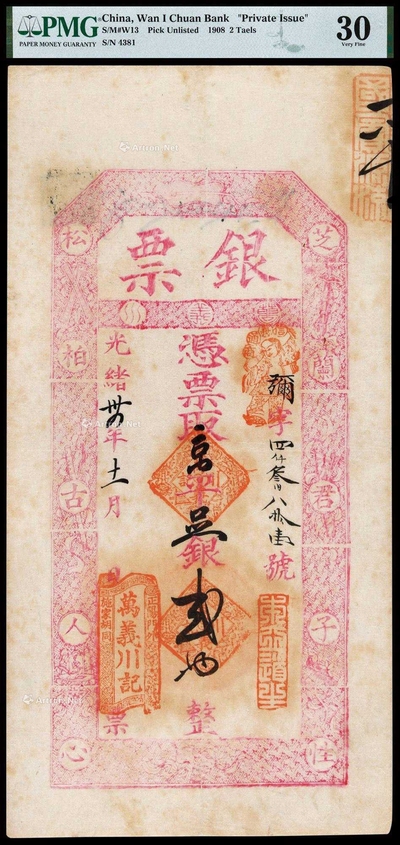 PMG
PAPER MONEY GUARANTY
China, Wan I Chuan Bank "Private Issue"
S/M#W13 Pick Unlisted 1908 2 Taels
S/N 4381
30
Very Fine
銀票
芝蘭君子性
松柏古人心
彌字四仟叁百八拾壹號
憑票取京平足銀貳両整
光緒卅年十一月日票
萬義川記